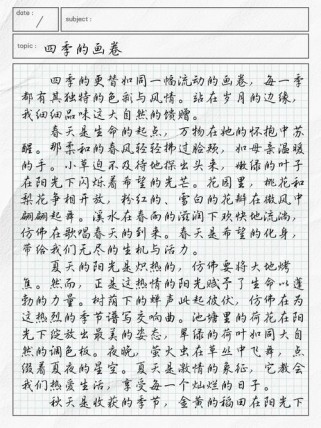 date:
/
subject:
topic: 四季的画卷
四季的更替如同一幅流动的画卷，每一季
都有其独特的色彩与风情。站在岁月的边缘，
我细细品味这大自然的馈赠。
春天是生命的起点，万物在她的怀抱中苏
醒。那柔和的春风轻轻拂过脸颊，如母亲温暖
的手。小草迫不及待地探出头来，嫩绿的叶子
在阳光下闪烁着希望的光芒。花园里，桃花和
梨花争相开放，粉红的、雪白的花瓣在微风中
翩翩起舞。溪水在春雨的滋润下欢快地流淌，
仿佛在歌唱春天的到来。春天是希望的化身，
带给我们无尽的生机与活力。
夏天的阳光是炽热的，仿佛要将大地烤
焦。然而，正是这热情的阳光赋予了生命以蓬
勃的力量。树荫下的蝉声此起彼伏，仿佛在为
这热烈的季节谱写交响曲。池塘里的荷花在阳
光下绽放出最美的姿态，翠绿的荷叶如同大自
然的调色板。夜晚，萤火虫在草丛中飞舞，点
缀着夏夜的星空。夏天是激情的象征，它教会
我们热爱生活，享受每一个灿烂的日子。
秋天是收获的季节，金黄的稻田在阳光下